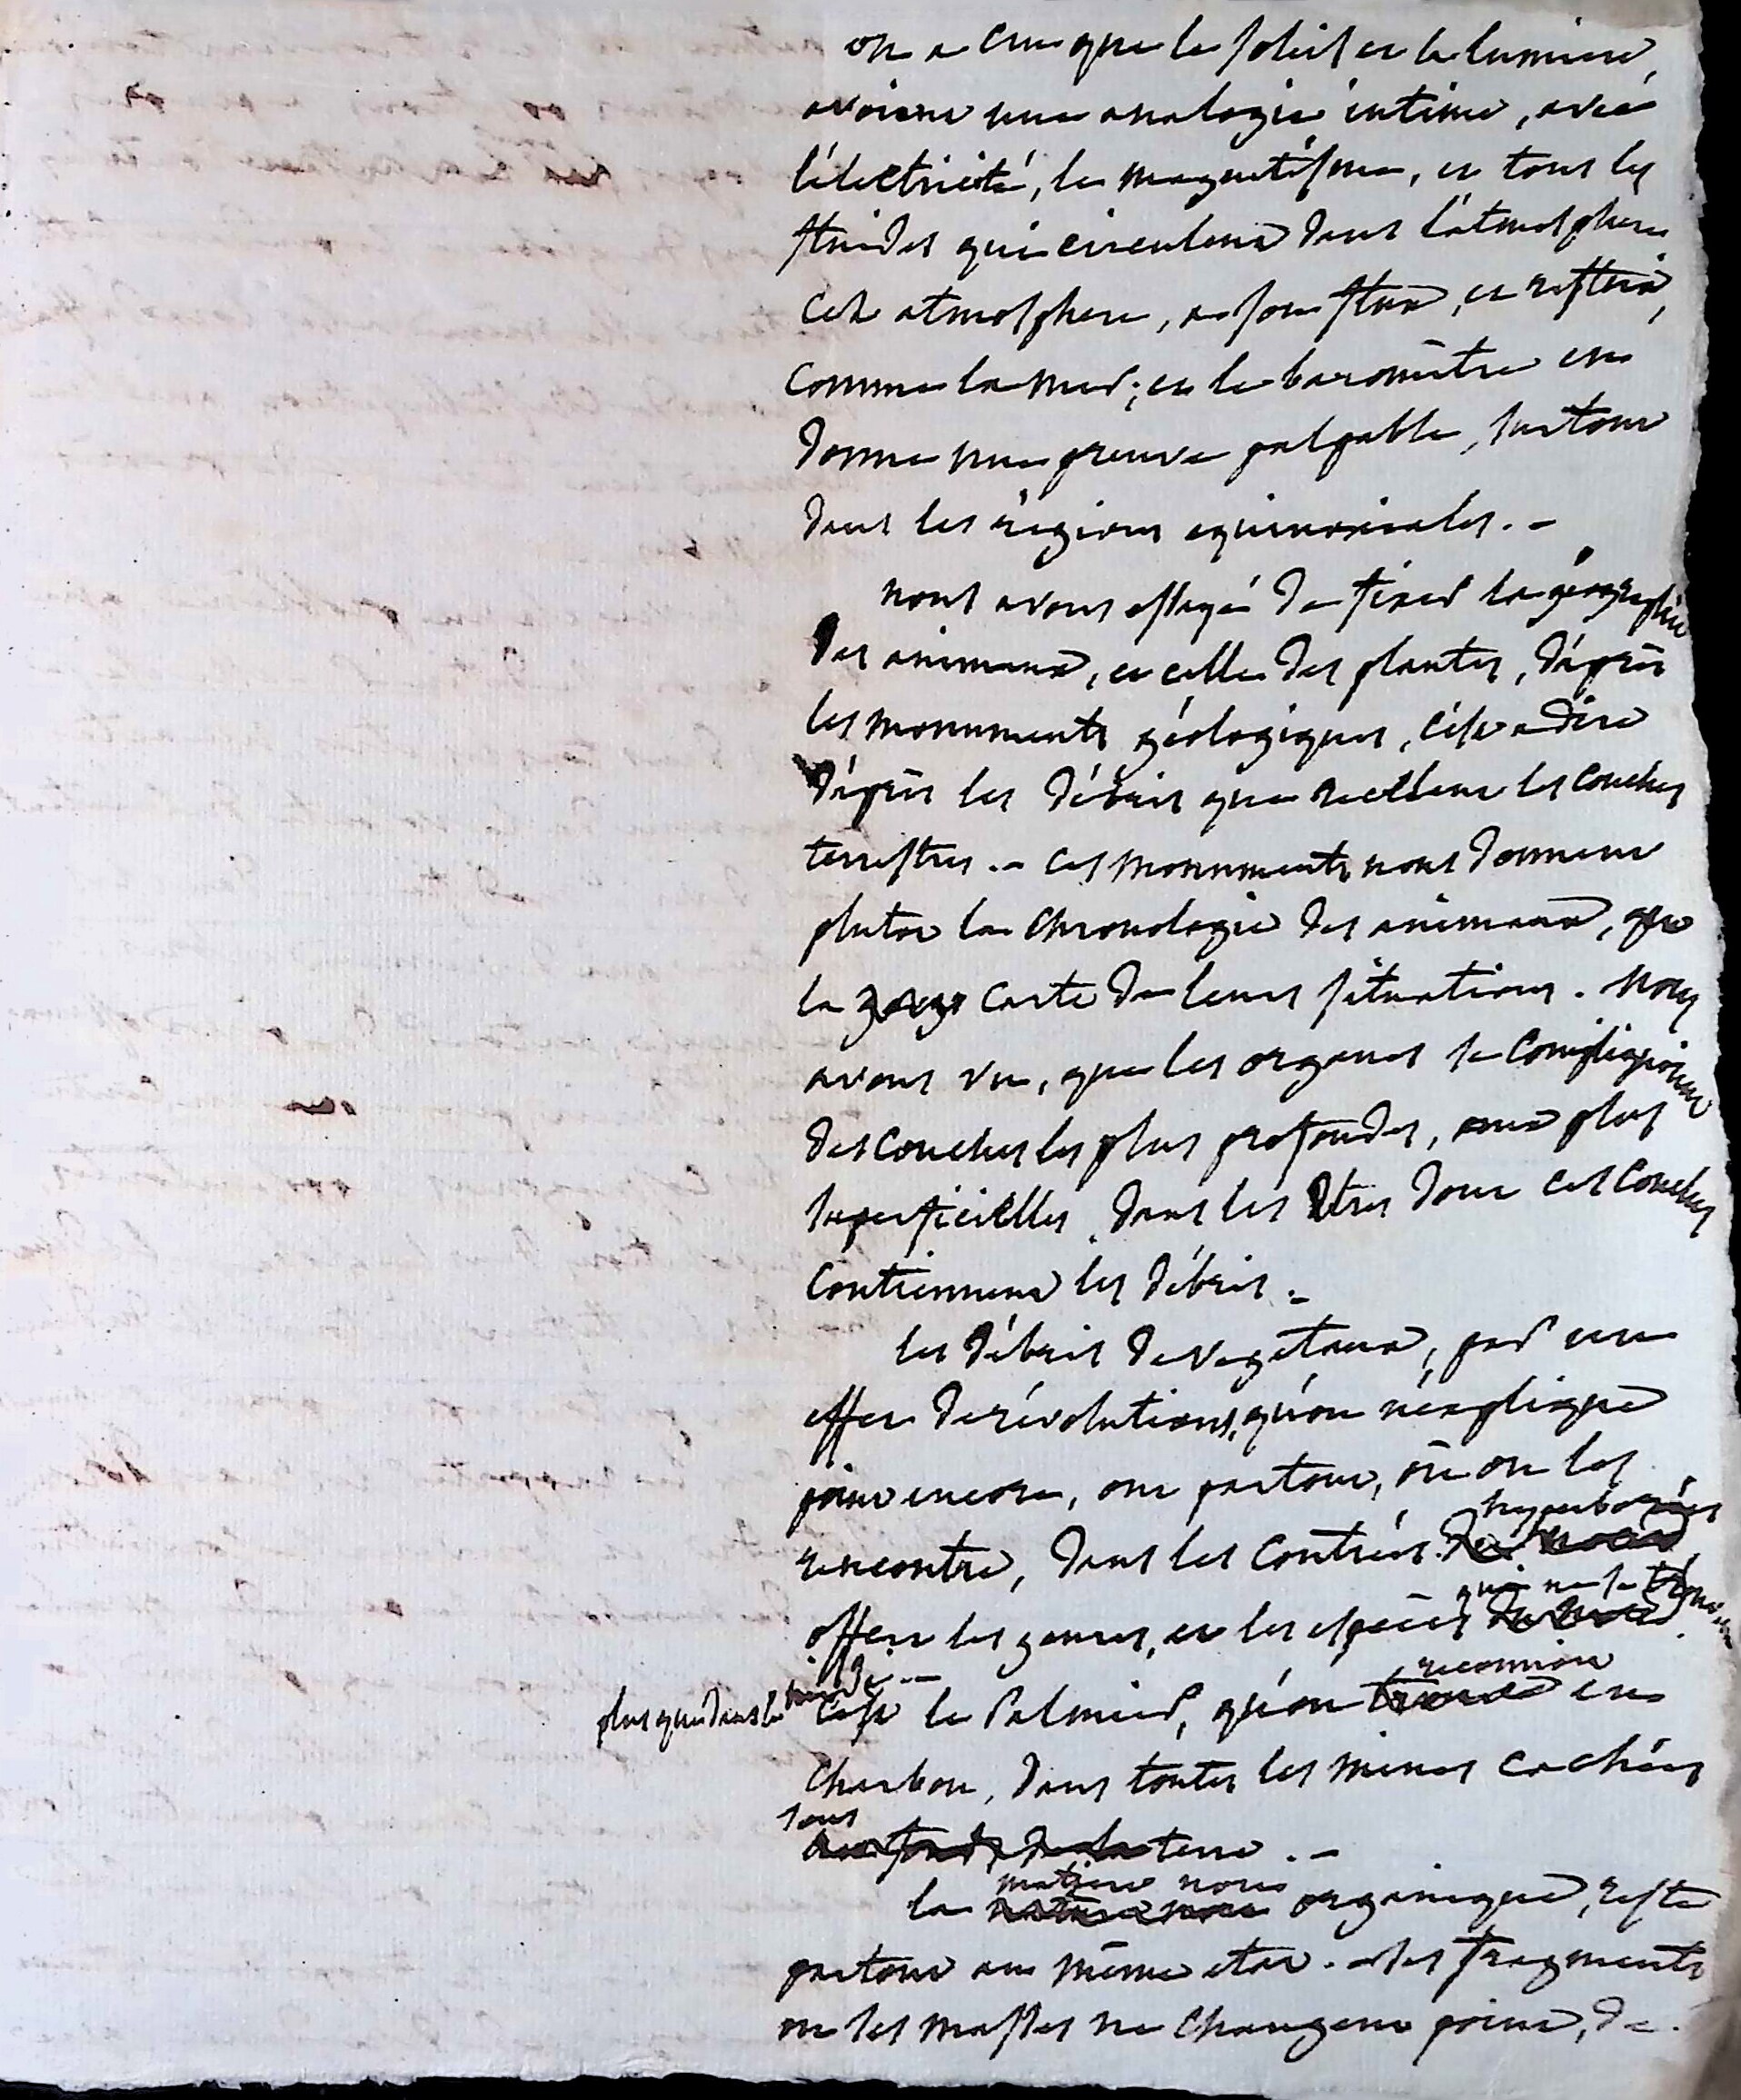 on a cru que le soleil et la lumiere,
avoient une analogie intime, avec
l'électricité, le magnetisme, et tous les
fluides qui circulent dans l'atmosphere
Cet atmosphere, a son flux, et reflux,
comme la mer; et le barométre en
donne une preuve palpable, surtout
dans les régions equinoxiales. -
nous avons essayé de fixer la géographie
des animaux, et celle des plantes, d'aprés
les monuments géologiques, c'est a dire
d'aprés les débris que recelent les couches
terrestres. - ces monuments nous donnent
plutot la chronologie des animaux, que
la carte de leurs situations. nous
avons vu, que les organes se compliquoient
des couches les plus profondes, aux plus
superficielles, dans les êtres dont ces couches
contiennent les débris. -
les débris de vegetaux, par un
effet de révolutions, qu'on n'explique
point encore, ont partout, où on les
hyperborées
rencontre, dans les contrées du nord
qui ne se trouvent
offert les genres, et les espèces du midi.
plus que dans le midi. -
reconnoit
c'est le Palmier, qu'on trouve en
charbon, dans toutes les mines cachées
sous
au fond de la terre. -
matiere non
la nature non organique, reste
partout au même etat. - les fragments
ou les masses ne changent point, de